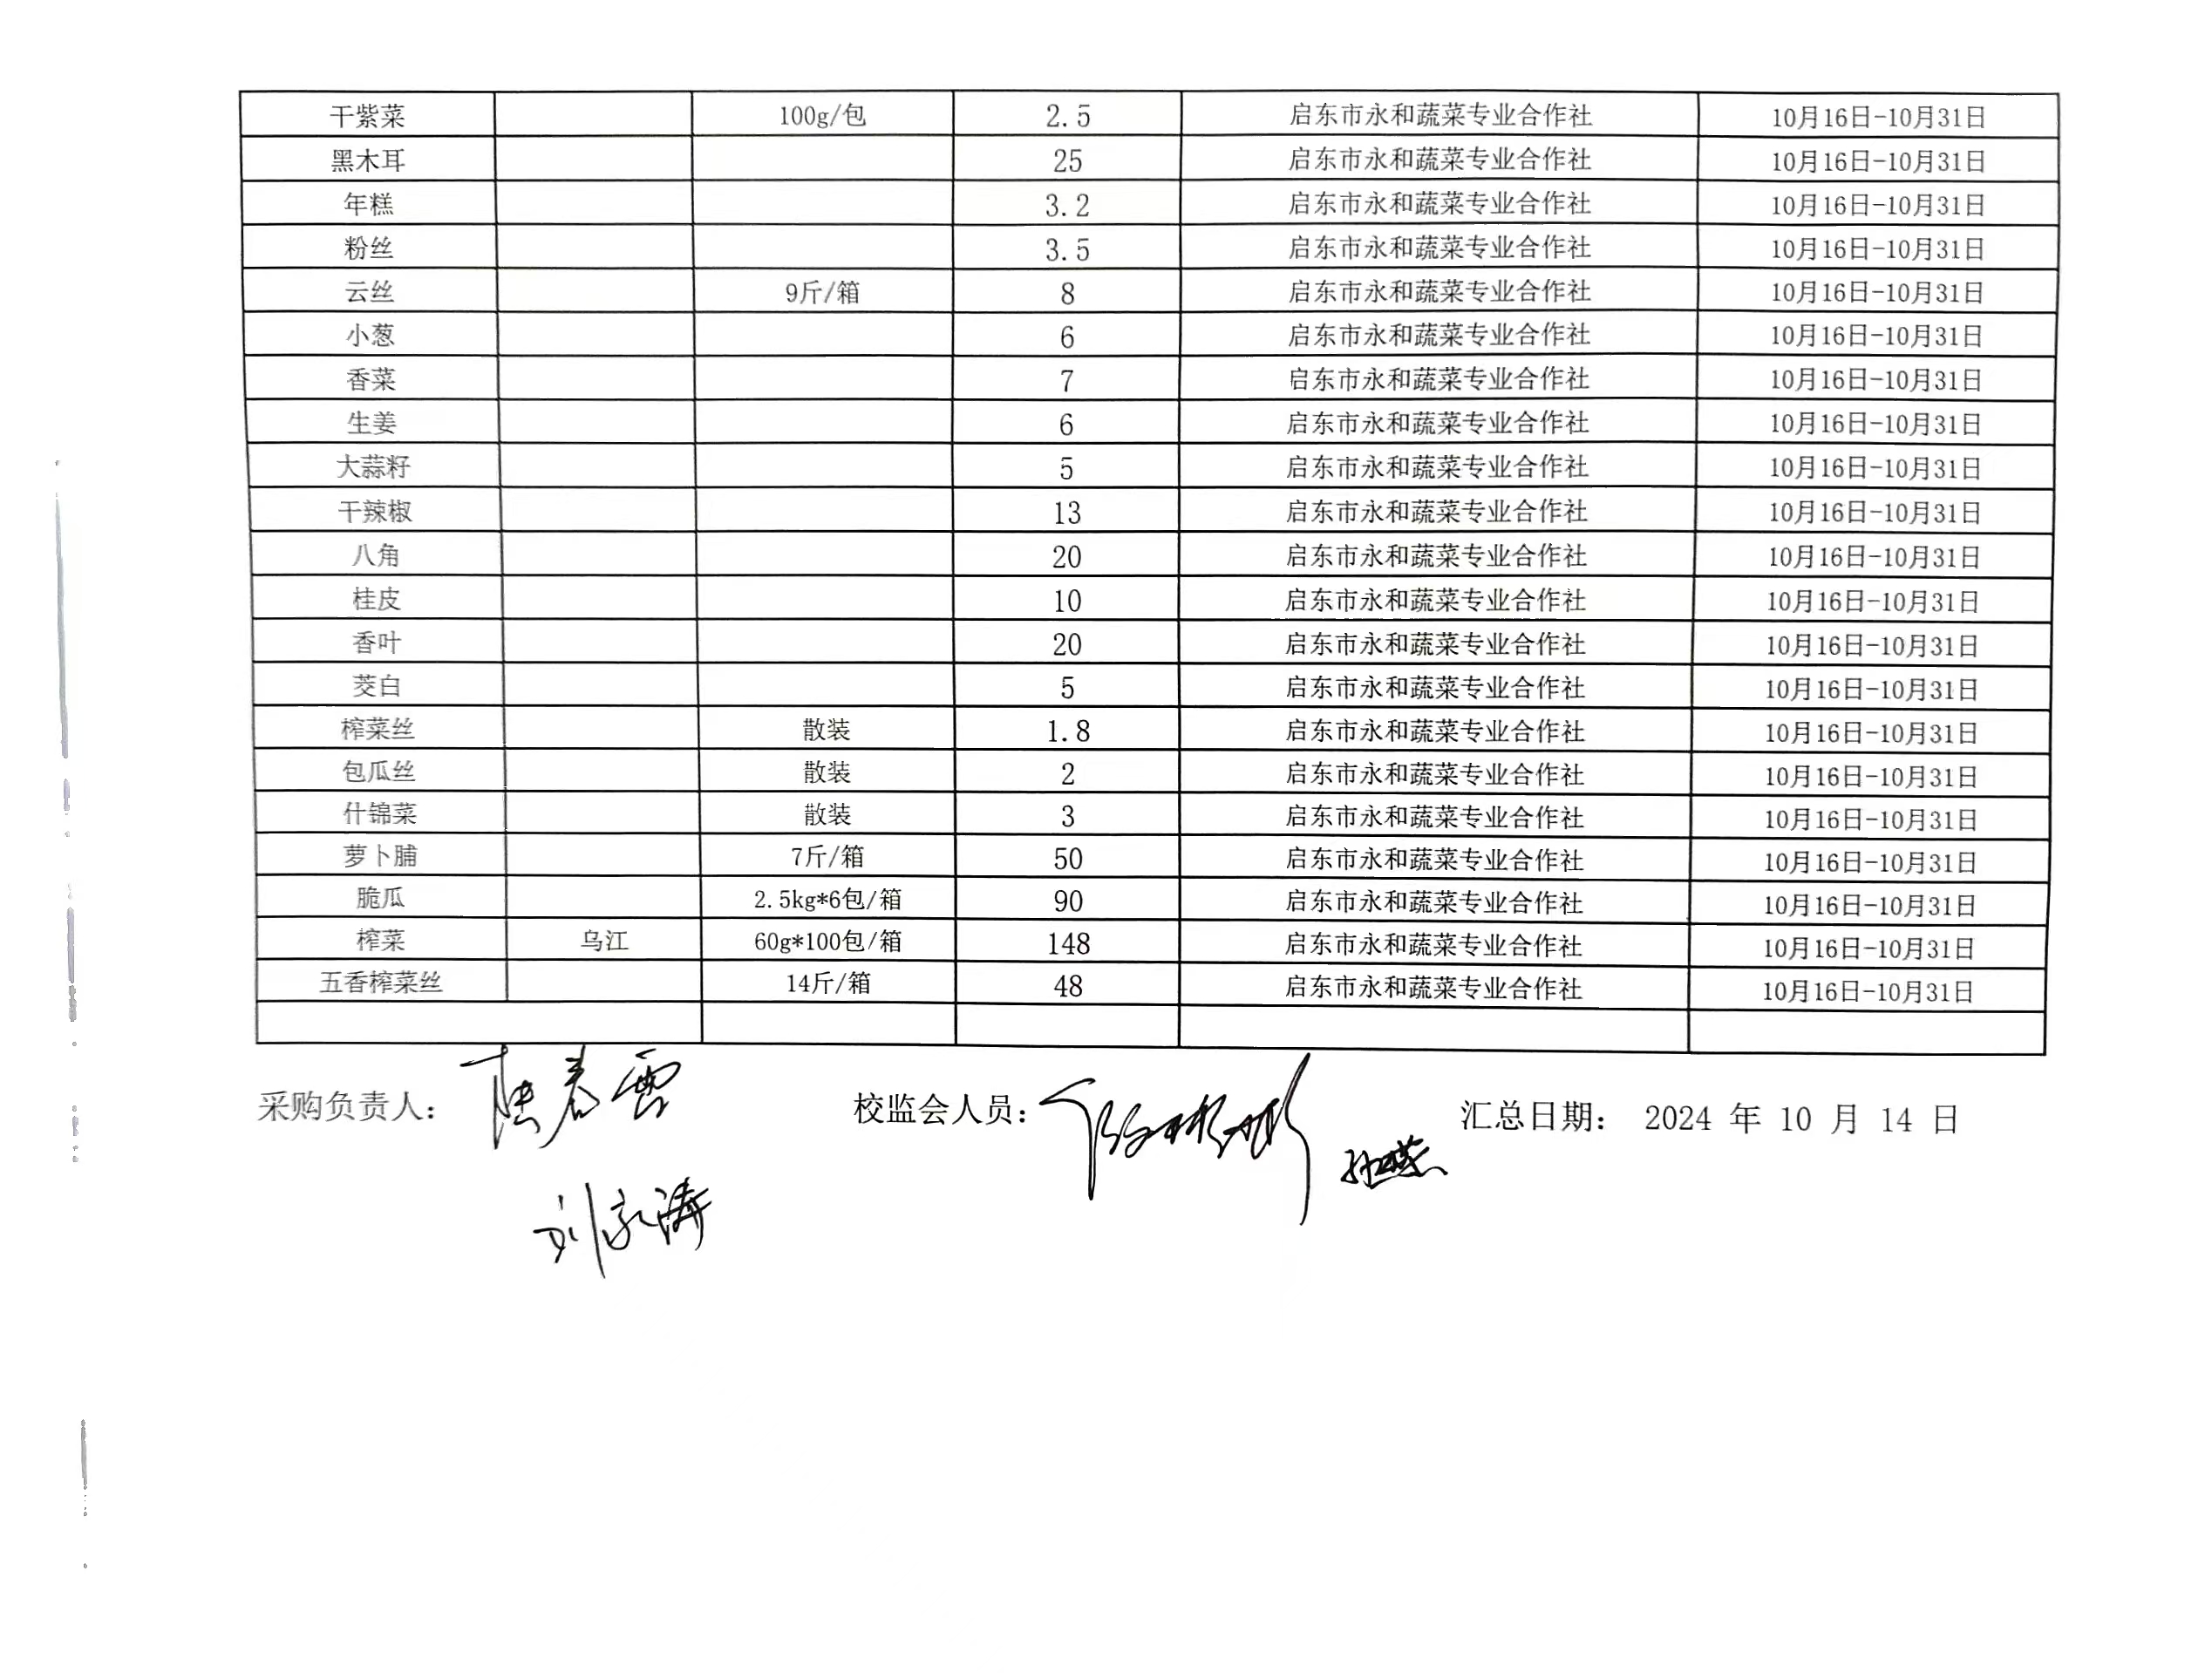 干紫菜 100g/包 2.5 启东市永和蔬菜专业合作社 10月16日-10月31日
黑木耳 25 启东市永和蔬菜专业合作社 10月16日-10月31日
年糕 3.2 启东市永和蔬菜专业合作社 10月16日-10月31日
粉丝 3.5 启东市永和蔬菜专业合作社 10月16日-10月31日
云丝 9斤/箱 8 启东市永和蔬菜专业合作社 10月16日-10月31日
小葱 6 启东市永和蔬菜专业合作社 10月16日-10月31日
香菜 7 启东市永和蔬菜专业合作社 10月16日-10月31日
生姜 6 启东市永和蔬菜专业合作社 10月16日-10月31日
大蒜籽 5 启东市永和蔬菜专业合作社 10月16日-10月31日
干辣椒 13 启东市永和蔬菜专业合作社 10月16日-10月31日
八角 20 启东市永和蔬菜专业合作社 10月16日-10月31日
桂皮 10 启东市永和蔬菜专业合作社 10月16日-10月31日
香叶 20 启东市永和蔬菜专业合作社 10月16日-10月31日
茭白 5 启东市永和蔬菜专业合作社 10月16日-10月31日
榨菜丝 散装 1.8 启东市永和蔬菜专业合作社 10月16日-10月31日
包瓜丝 散装 2 启东市永和蔬菜专业合作社 10月16日-10月31日
什锦菜 散装 3 启东市永和蔬菜专业合作社 10月16日-10月31日
萝卜脯 7斤/箱 50 启东市永和蔬菜专业合作社 10月16日-10月31日
脆瓜 2.5kg*6包/箱 90 启东市永和蔬菜专业合作社 10月16日-10月31日
榨菜 乌江 60g*100包/箱 148 启东市永和蔬菜专业合作社 10月16日-10月31日
五香榨菜丝 14斤/箱 48 启东市永和蔬菜专业合作社 10月16日-10月31日
采购负责人： 陆春雷 校监会人员： 孙燕 汇总日期： 2024 年 10 月 14 日